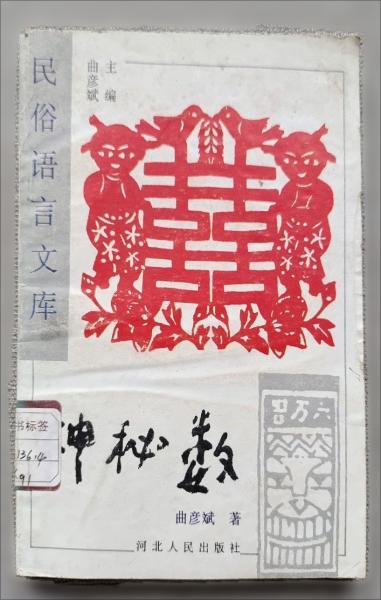 民俗语言文库
主编
曲彦斌
神秘数
书标签
136.4
91
曲彦斌 著
河北人民出版社